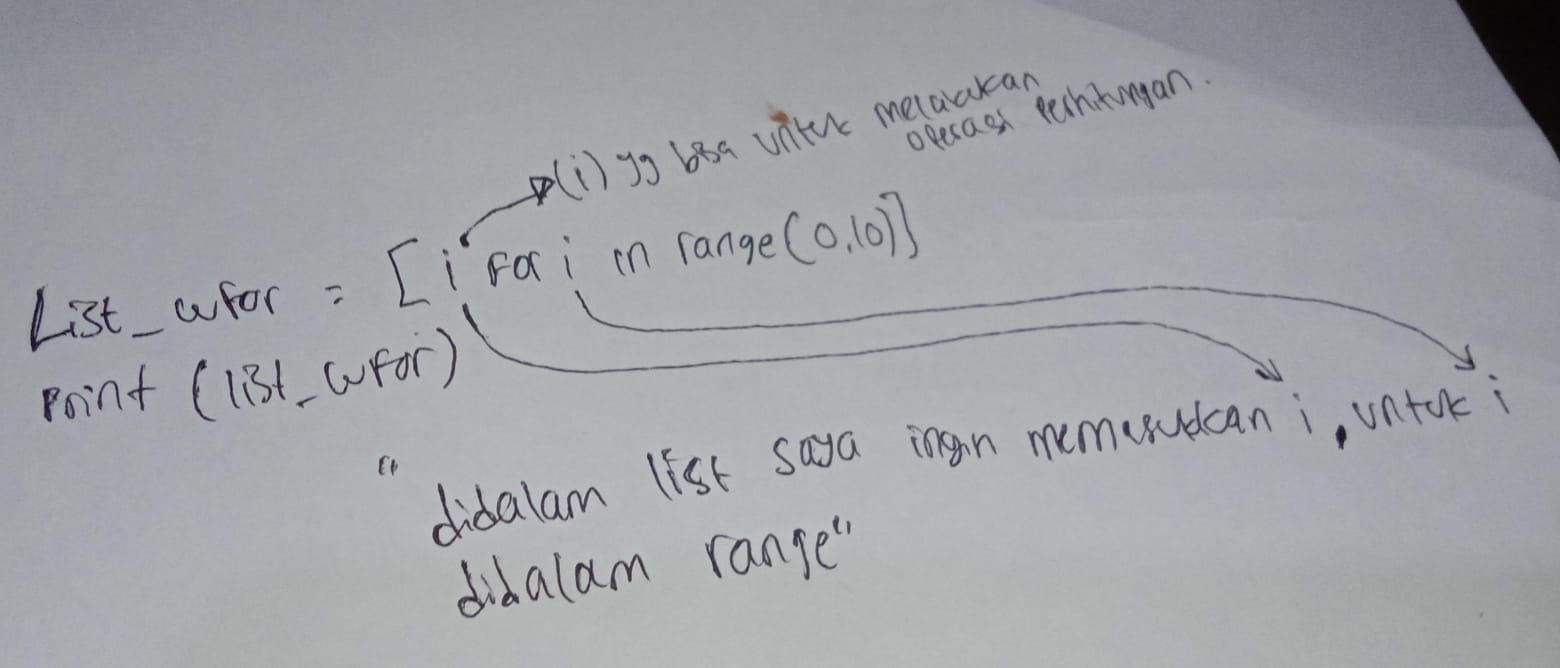 (i) yg bisa untuk melakukan
operasi perhitungan.
List_wfor = [i for i in range(0,10)]
Print (list_wfor)
"didalam list saya ingin memasukkan i, untuk i
didalam range"